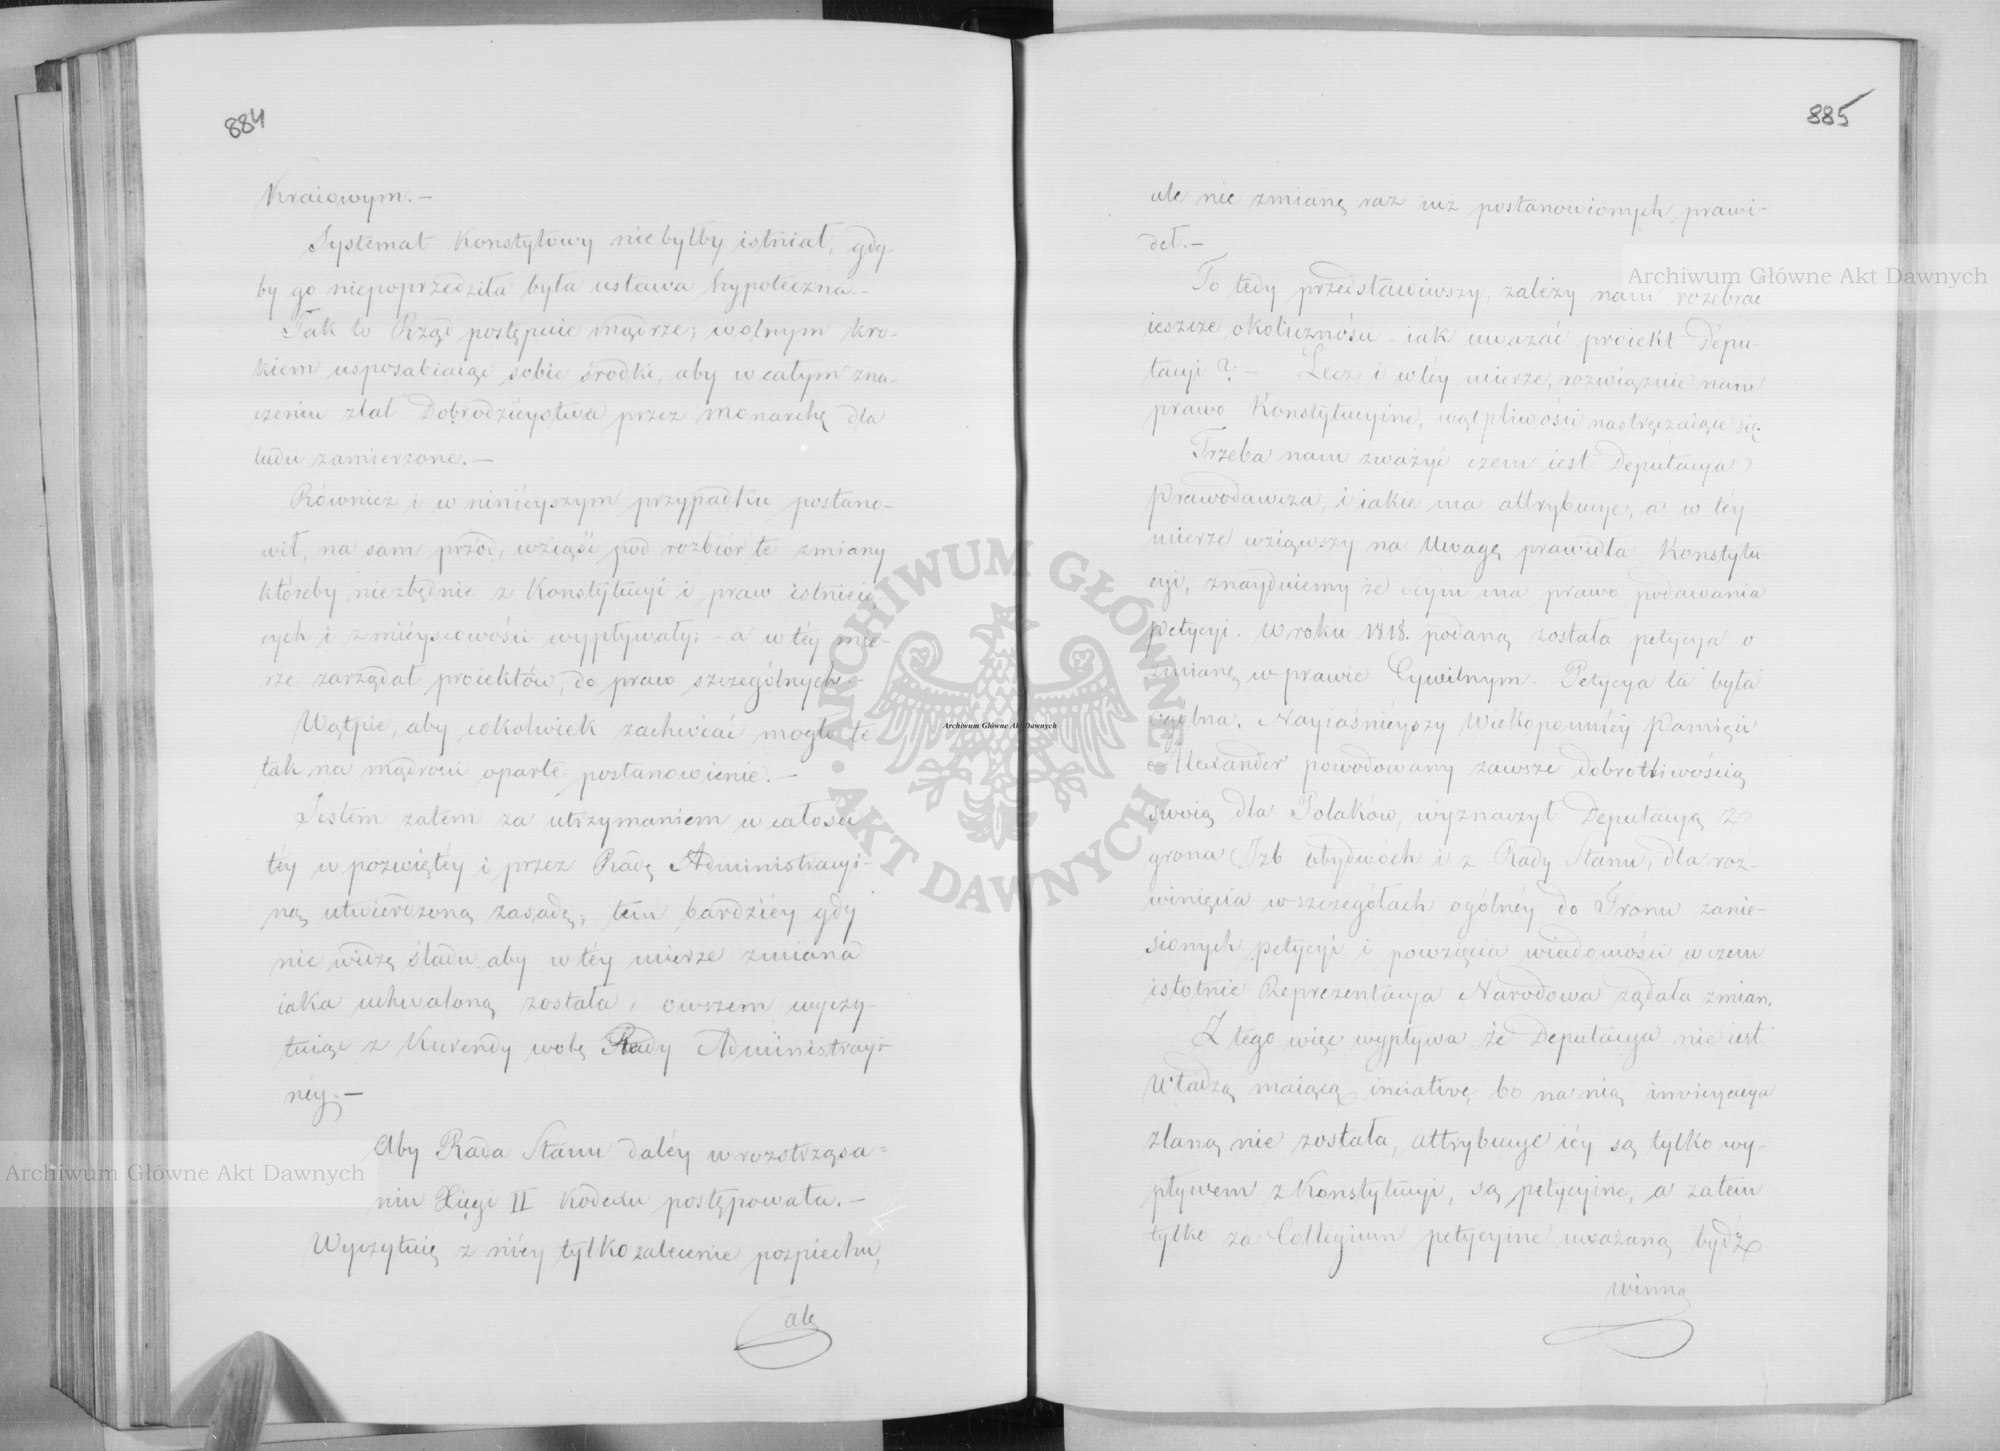 884
Kraiowym.—
Systemat Konstytowy niebyłby istniał, gdy-
by go niepoprzedziła była ustawa hypoteczna.—
Tak to Rząd postępuie mądrze; wolnym kro-
kiem usposabiaiąc sobie środki, aby w całym zna-
czeniu zlał Dobrodzieystwa przez Monarchę dla
ludu zamierzone.—
Również i w ninieyszym przypadku postano-
wił, na sam przód, wziąść pod rozbiór te zmiany
któreby niezbędnie z Konstytucyi i praw istnieią-
cych i z mieyscowości wypływały; – a w téy mie-
rze zarządał proiektów, do praw szczególnych.—
Wątpię, aby cokolwiek zachwiać mogło te
tak na mądrości oparte postanowienie.—
Jestem zatem za utrzymaniem w całości
téy w pozwiętéy i przez Radę Administracyi-
ną utwierdzoną zasadę; tem bardziéy gdy
nie widzę śladu aby w téy mierze zmiana
iaka uchwaloną została, owszem wyczy-
tuiąc z Kurendy wolę Rady Administracyi-
néy.—
Aby Rada Stanu daléy w rozstrząsa=
niu Xięgi II Kodexu postępowała.—
Wyczytuię z niéy tylko zalecenie pospiechu,
ale
885
ale nie zmianę raz iuż postanowionych prawi-
deł.—
To tedy przedstawiwszy, zależy nam rozebrać
ieszcze okoliczności iak uważać proiekt Depu-
tacyi? — Lecz i w téy mierze, rozwiązuie nam
prawo Konstytucyine, wątpliwości nastręczaiące się.
Trzeba nam zważyć czem iest Deputacya
Prawodawcza, i iakie ma attrybucye, a w téy
mierze wziąwszy na Uwagę prawidła Konstytu
cyi, znayduiemy że Seym ma prawo podawania
Petycyi. W roku 1818. podaną została petycya o
zmianę w prawie Cywilnym. Petycya ta była
ogólna. Nayiaśnieyszy Wiekopomnéy Pamięci
Alexander powodowany zawsze dobrotliwością
swoią dla Polaków, wyznaczył Deputacyą z
grona Izb obydwóch i z Rady Stanu, dla roz-
winięcia w szczegółach ogólnéy do Tronu zanie-
sionych petycyi i powzięcia wiadomości w czem
istotnie Reprezentacya Narodowa żądała zmian.
Z tego więc wypływa że Deputacya nie iest
Władzą maiącą inciativę, bo na nią
zlaną nie została, attrybucye iéy są tylko wy-
pływem z Konstytucyi, są petycyine, a zatem
tylko za Collegium petycyine uważaną bydź
winna
Archiwum Główne Akt Dawnych
Archiwum Główne Akt Dawnych
Archiwum Główne Akt Dawnych
ARCHIWUM GŁÓWNE · AKT DAWNYCH ·